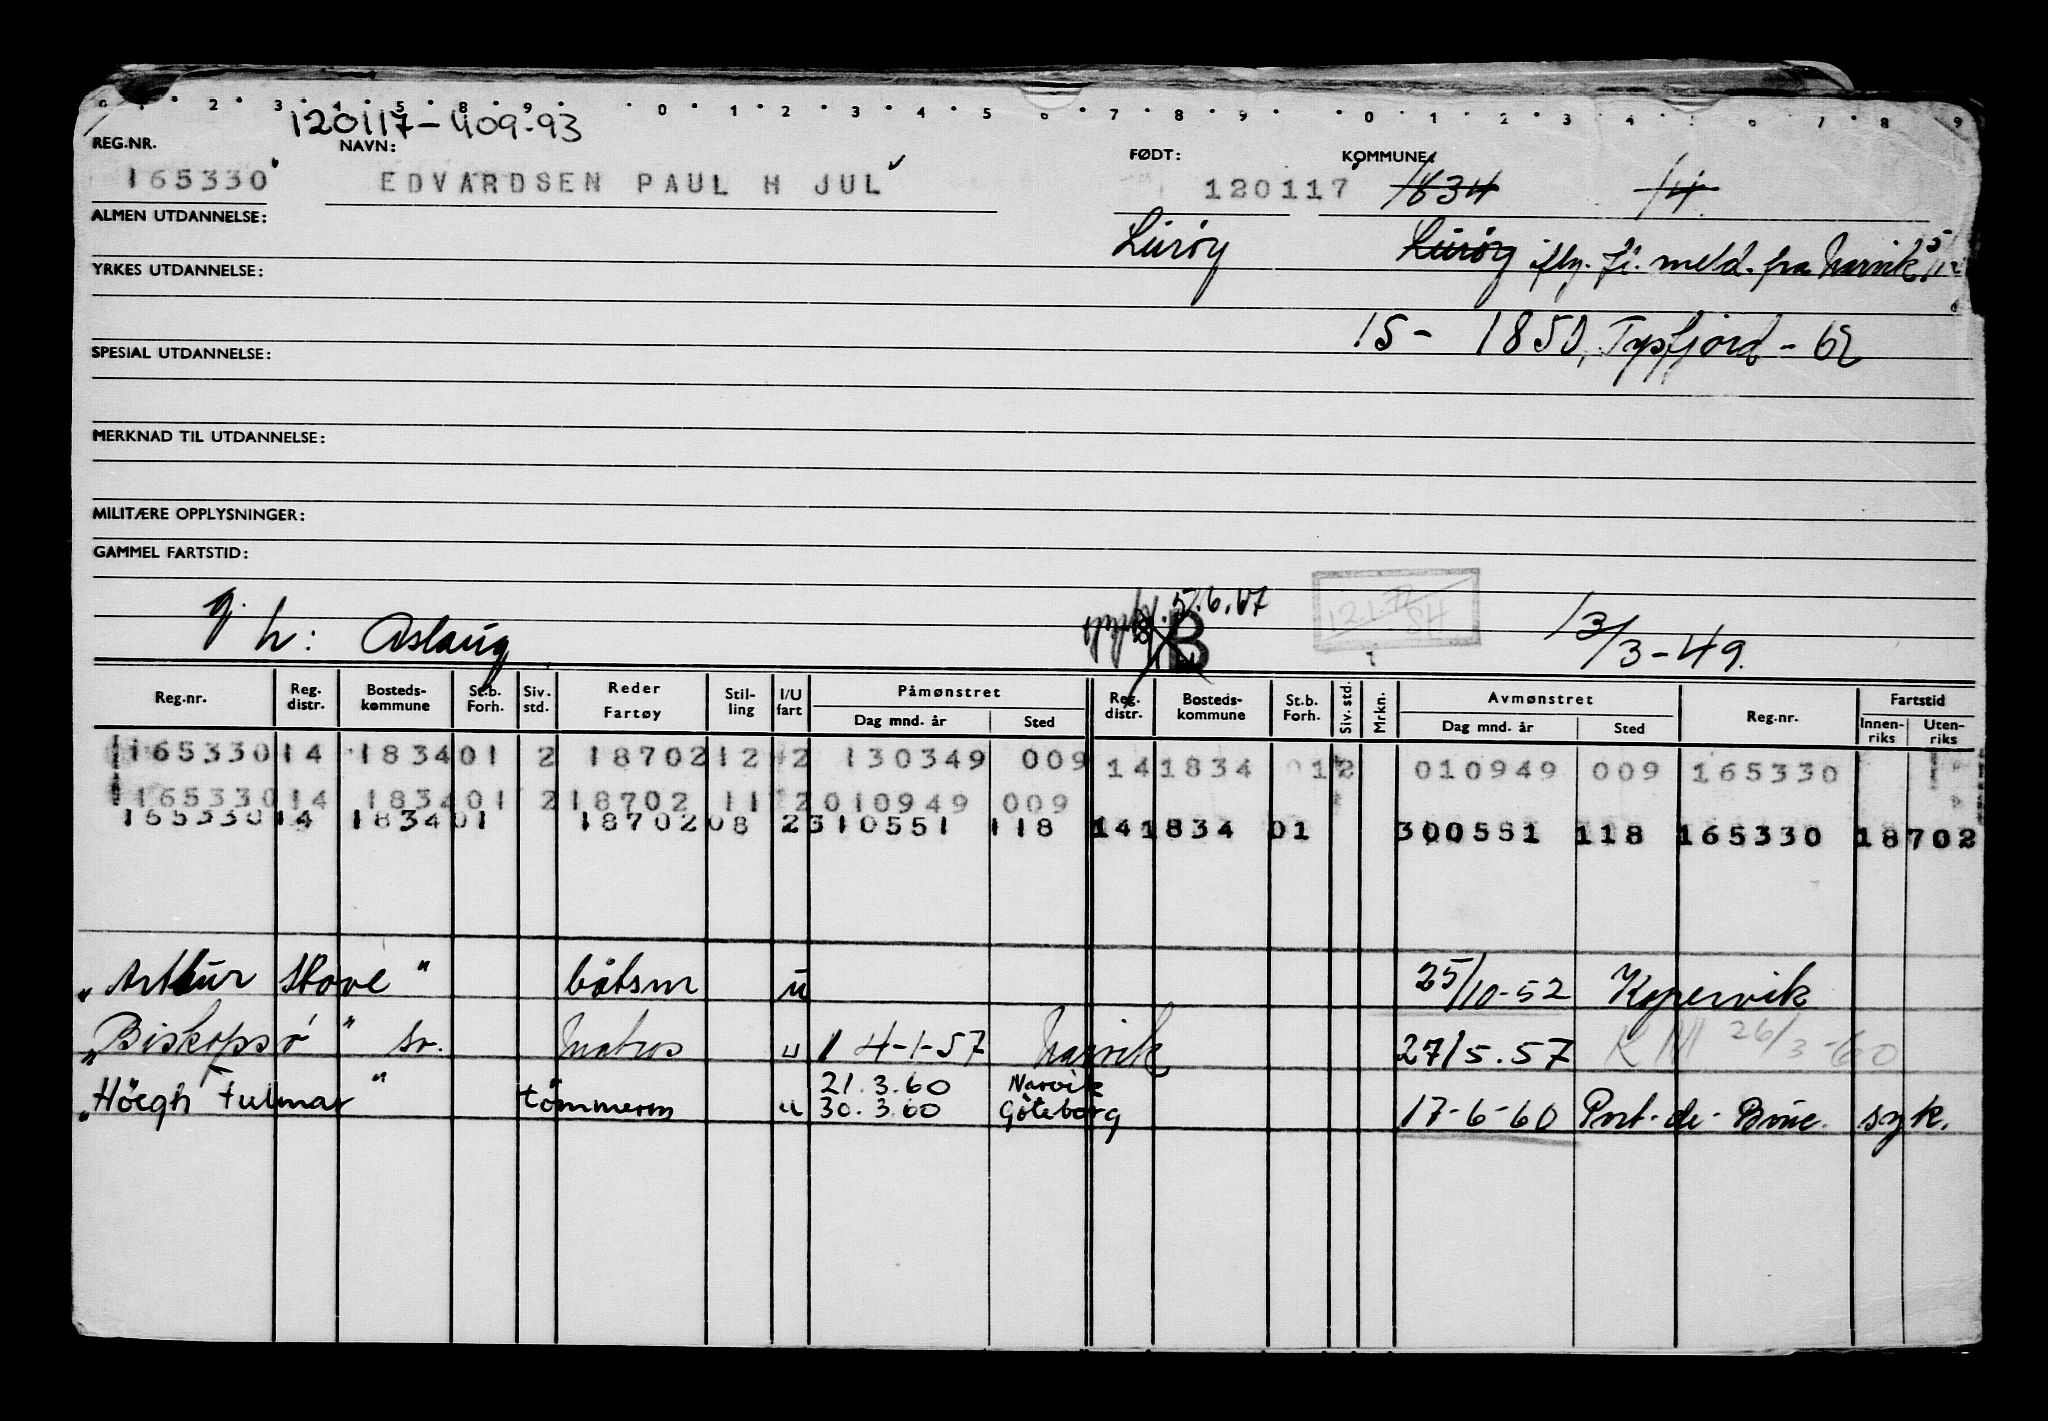 120117-409-93
REG.NR. NAVN: FØDT: KOMMUNE:
165330 EDVARDSEN PAUL H JUL 120117 1834 14
ALMEN UTDANNELSE: Lurøy Lurøy iflg. fl. meld. fra Narvik 5/12
YRKES UTDANNELSE:
15- 1850, Tysfjord - 62
SPESIAL UTDANNELSE:
MERKNAD TIL UTDANNELSE:
MILITÆRE OPPLYSNINGER:
GAMMEL FARTSTID:
g. h: Aslaug B 13/3-49.
Reg.nr. Reg. distr. Bosteds-kommune St.b. Forh. Siv. std. Reder Fartøy Stil-ling I/U fart Påmønstret Dag mnd. år Sted Reg. distr. Bosteds-kommune St.b. Forh. Siv. std. Mrkn. Avmønstret Dag mnd. år Sted Reg.nr. Fartstid Innen-riks Uten-riks
165330 14 1834 01 2 18702 12 2 130349 009 14 1834 01 2 010949 009 165330
165330 14 1834 01 2 18702 11 2 010949 009
165330 14 1834 01 18702 08 2 310551 118 14 1834 01 300551 118 165330 18702
"Arthur Stove" båtsm u 25/10-52 Kopervik
"Biskopsø" sr. Matros u 14-1-57 Narvik 27/5.57 26/3-60
21.3.60 Narvik
"Höegh Fulmar" tömmerm u 30.3.60 Göteborg 17-6-60 Port-de-Bouc. syk.